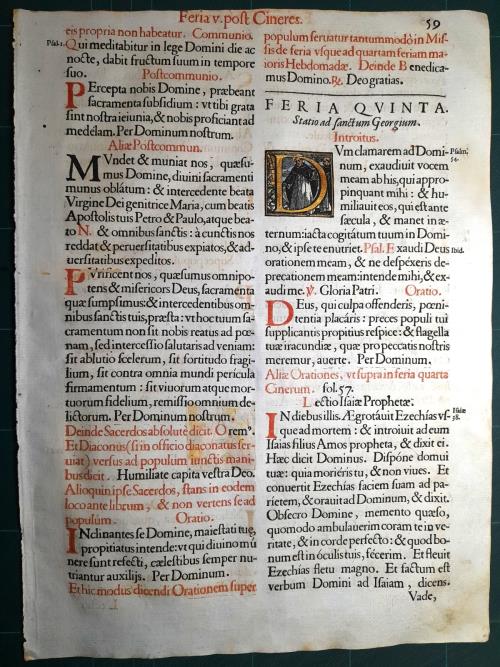 Feria v. post Cineres.
59
eis propria non habeatur. Communio.
Psal. 1.
Qui meditabitur in lege Domini die ac
nocte, dabit fructum suum in tempore
suo.
Postcommunio.
PErcepta nobis Domine, præbeant
sacramenta subsidium: vt tibi grata
sint nostra ieiunia, & nobis proficiant ad
medelam. Per Dominum nostrum.
Aliæ Postcommun.
MVndet & muniat nos, quæsu-
mus Domine, diuini sacramenti
munus oblátum: & intercedente beata
Virgine Dei genitrice Maria, cum beatis
Apostolis tuis Petro & Paulo, atque bea-
to N. & omnibus sanctis: à cunctis nos
reddat & peruersitatibus expiatos, & ad-
uersitatibus expeditos.
PVrificent nos, quæsumus omnipo-
tens & misericors Deus, sacramenta
quæ sumpsimus: & intercedentibus om-
nibus sanctis tuis, præsta: vt hoc tuum sa-
cramentum non sit nobis reatus ad pœ-
nam, sed intercessio salutaris ad veniam:
sit ablutio scelerum, sit fortitudo fragi-
lium, sit contra omnia mundi perícula
firmamentum: sit viuorum atque mor-
tuorum fidelium, remissio omnium de-
lictorum. Per Dominum nostrum.
Deinde Sacerdos absolute dicit. Oremꝰ.
Et Diaconus (si in officio diaconatus ser-
uiat) versus ad populum iunctis mani-
bus dicit. Humiliate capita vestra Deo.
Alioquin ipse Sacerdos, stans in eodem
loco ante librum, & non vertens se ad
populum. Oratio.
INclinantes se Domine, maiestati tuę,
propitiatus intende: vt qui diuino mú
nere sunt refecti, cælestibus semper nu-
triantur auxilijs. Per Dominum.
Et hic modus dicendi Orationem super
populum seruatur tantummodò in Mis-
sis de feria vsque ad quartam feriam ma-
ioris Hebdomadæ. Deinde Benedica-
mus Domino. ℟. Deo gratias.
FERIA QVINTA.
Statio ad sanctum Georgium.
Introitus.
DVm clamarem ad Domi-
Psalm. 54.
num, exaudiuit vocem
meam ab his, qui appro-
pinquant mihi: & hu-
miliauit eos, qui est ante
sæcula, & manet in æ-
ternum: iacta cogitátum tuum in Domi-
no, & ipse te enutriet. Psal. Exaudi Deus
Ibid.
orationem meam, & ne despéxeris de-
precationem meam: intende mihi, & ex-
audi me. ℣. Gloria Patri. Oratio.
DEus, qui culpa offenderis, pœni-
tentia placáris: preces populi tui
supplicantis propitius respice: & flagella
tuæ iracundiæ, quæ pro peccatis nostris
meremur, auerte. Per Dominum.
Aliæ Orationes, vt supra in feria quarta
Cinerum. fol. 57.
Lectio Isaiæ Prophetæ.
IN diebus illis. Ægrotáuit Ezechías vs-
Isaiæ 38.
que ad mortem: & introiuit ad eum
Isaias filius Amos propheta, & dixit ei.
Hæc dicit Dominus. Dispóne domui
tuæ: quia moriéris tu, & non viues. Et
conuertit Ezechías faciem suam ad pa-
ríetem, & orauit ad Dominum, & dixit.
Obsecro Domine, memento quæso,
quomodo ambulauerim coram te in ve-
ritate, & in corde perfecto: & quod bo-
num est in óculis tuis, fécerim. Et fleuit
Ezechías fletu magno. Et factum est
verbum Domini ad Isaiam, dicens.
Vade,